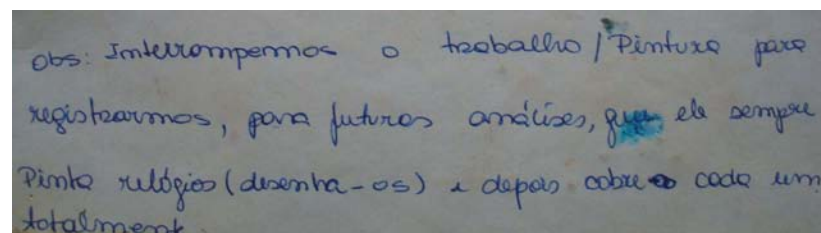 Obs: Interrompemos o trabalho / Pintura para
registrarmos, para futuras análises, que ele sempre
Pinta relógios (desenha-os) e depois cobre cada um
totalment